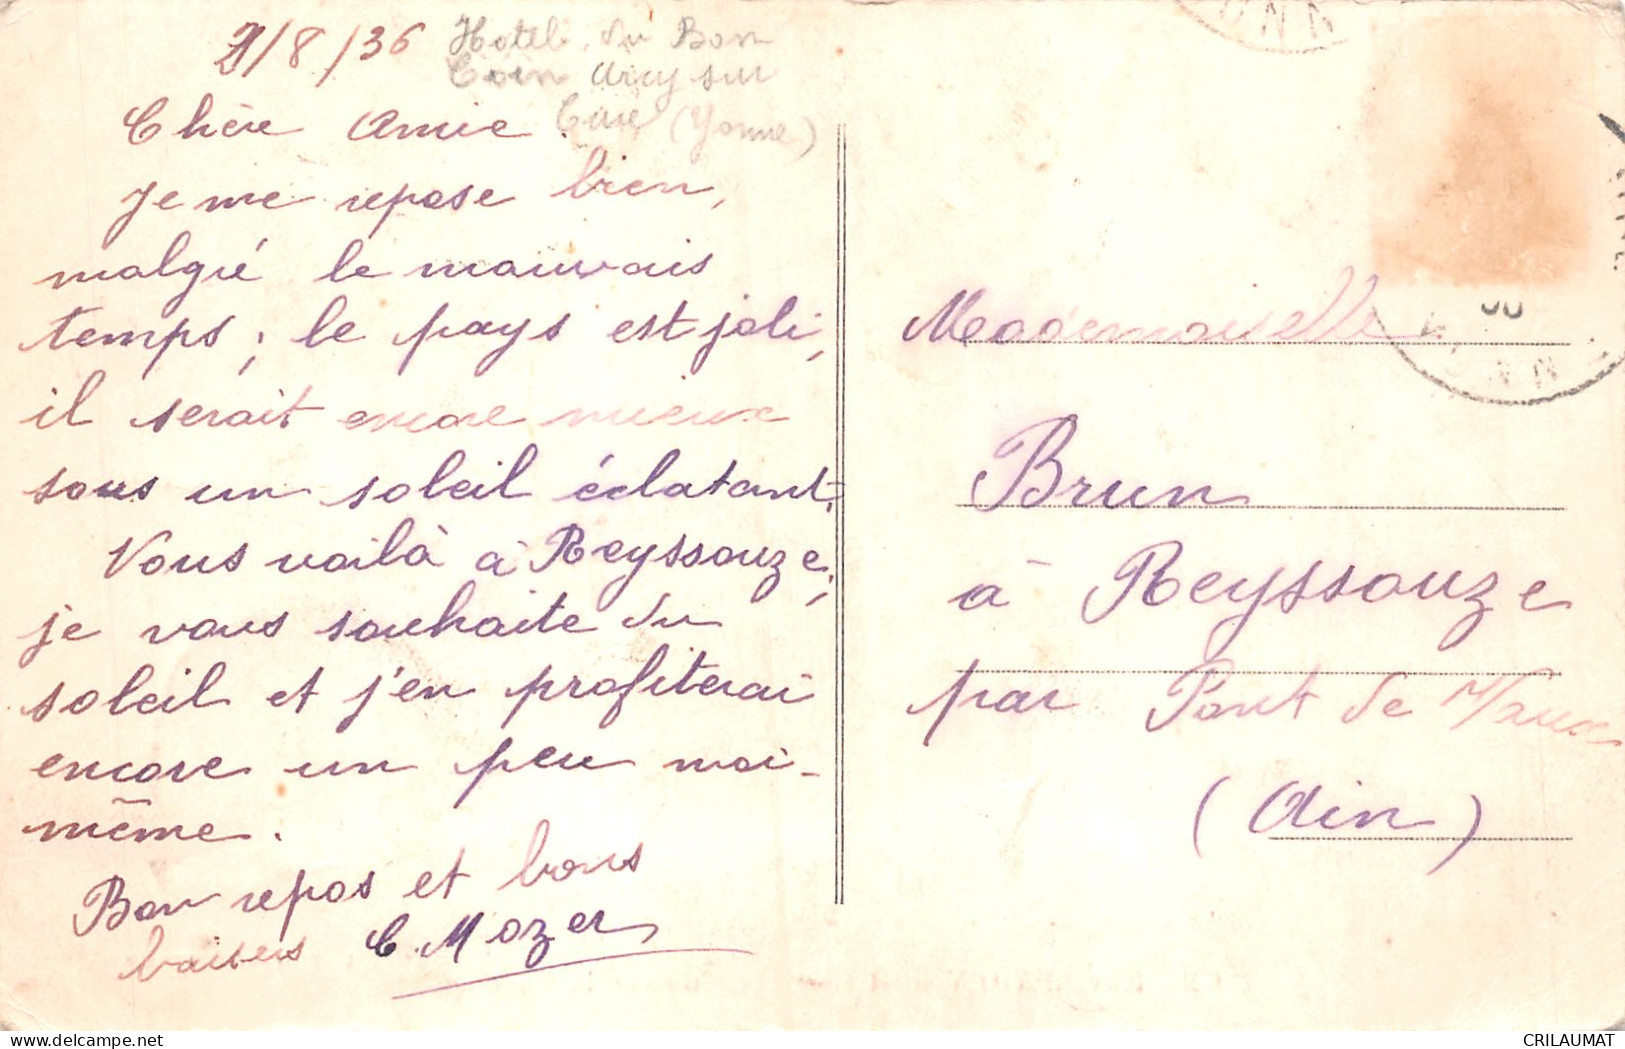 /8/36 Hotel du Bon
Coin Arcy sur
Cure (Yonne)
Chère Amie
Je me repose bien,
malgré le mauvais
temps ; le pays est joli,
il serait encore mieux
sous un soleil éclatant.
Vous voilà à Reyssouze,
je vous souhaite du
soleil et j'en profiterai
encore un peu moi-
même.
Bon repos et bons
baisers C. Mozer
Mademoiselle
Brun
à Reyssouze
par Pont de Vaux
(Ain)
delcampe.net
CRILAUMAT